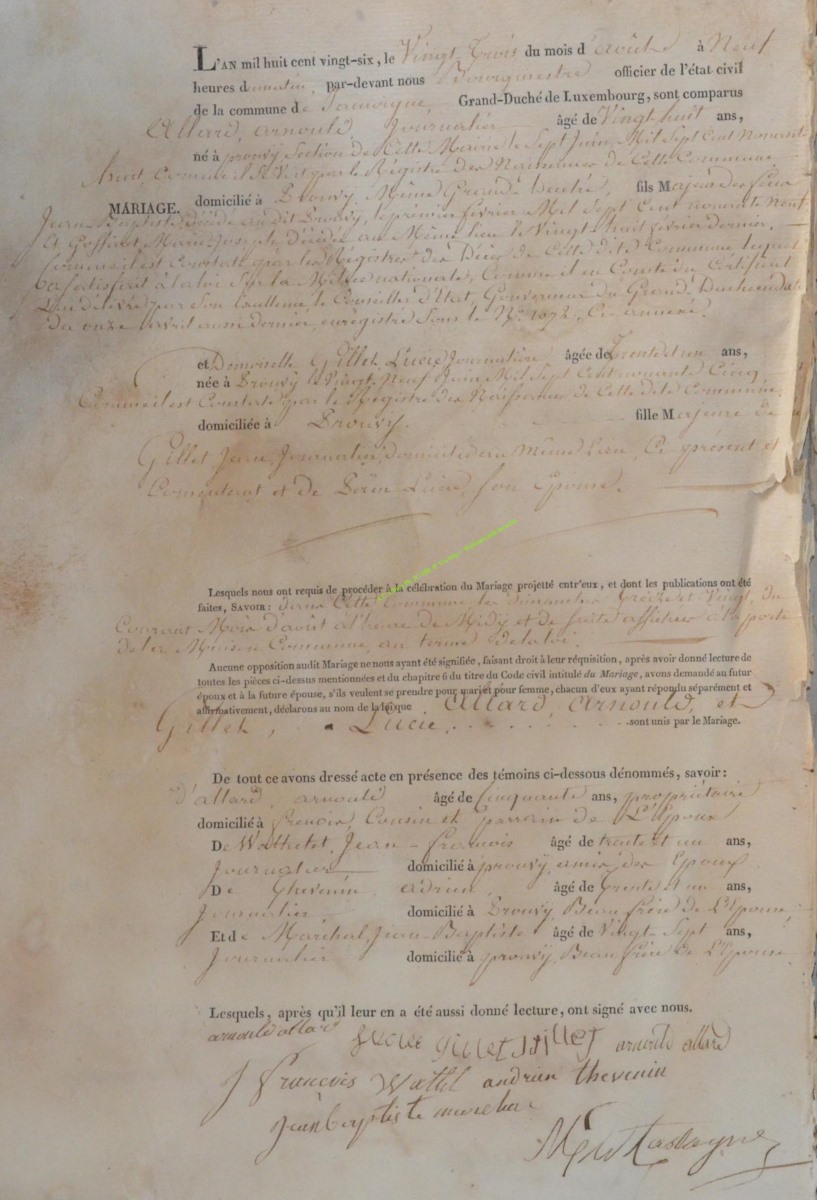 L'AN mil huit cent vingt-six, le Vingt Trois du mois d'août à Neuf
heures du matin, par-devant nous Bourgmestre officier de l'état civil
de la commune de Jamoigne, Grand-Duché de Luxembourg, sont comparus
Allard, arnould, Journalier âgé de Vingt huit ans,
né à prouvy Section de Cette Mairie le Sept Juin Mil Sept Cent Nonante
huit, Comme il Se Voit par le Régistre des Naissances de Cette Commune
MARIAGE. domicilié à Prouvy, Même Grand-Duché, fils Majeur des feux
Jean-Baptiste Décédé audit Prouvy, le premier février Mil Sept Cent nonante Neuf
et Goffinet Marie Joseph, décédée au Même lieu le Vingt huit février dernier,
Comme il est Constaté par les Régistres des Décès de Cette dite Commune lequel
a satisfait à la loi Sur la Milice nationale, Comme il en Conste du Certificat
délivré par Son Excellence le Conseiller d'état, Gouverneur du Grand Duché en date
du onze avril aussi dernier, enregistré Sous le N.° 1072, Ci-annexé.
et Demoiselle Gillet Lucie Journalière âgée de Trente et un ans,
née à Prouvy le Vingt Neuf Juin Mil Sept Cent nonante Cinq
Comme il est Constaté par le Régistre des Naissances de Cette dite Commune,
domiciliée à Prouvy. fille Majeure de
Gillet Jean, Journalier, domicilié au Même Lieu, Ci présent et
Consentant, et de Lucie, Son Epouse.
Lesquels nous ont requis de procéder à la célébration du Mariage projetté entr'eux, et dont les publications ont été
faites, SAVOIR: dans Cette Commune les dimanches Treize et Vingt, du
Courant Mois d'août à l'heure de Midy et de suite affichées à la porte
de la Maison Commune, au terme de la loi.
Aucune opposition audit Mariage ne nous ayant été signifiée, faisant droit à leur réquisition, après avoir donné lecture de
toutes les pièces ci-dessus mentionnées et du chapitre 6 du titre du Code civil intitulé du Mariage, avons demandé au futur
époux et à la future épouse, s'ils veulent se prendre pour mari et pour femme, chacun d'eux ayant répondu séparément et
affirmativement, déclarons au nom de la loi que Allard, Arnould, et
Gillet, Lucie, sont unis par le Mariage.
De tout ce avons dressé acte en présence des témoins ci-dessous dénommés, savoir:
D'allard, arnould âgé de Cinquante ans, propriétaire
domicilié à frenois, Cousin et parrain de L'Epoux
De Wathelet, Jean-François âgé de trente et un ans,
Journalier domicilié à prouvy, ami des Epoux
De Thevenin adrien, âgé de Trente et un ans,
Journalier domicilié à Prouvy, Beau frère de L'Epouse,
Et de Maréchal, Jean-Baptiste âgé de Vingt Sept ans,
Journalier domicilié à prouvy, Beau frère de L'Epouse
Lesquels, après qu'il leur en a été aussi donné lecture, ont signé avec nous.
arnould allard
Lucie Gillet J Gillet arnould allard
J françois Wathl andrien thevenin
Jean baptiste marechal